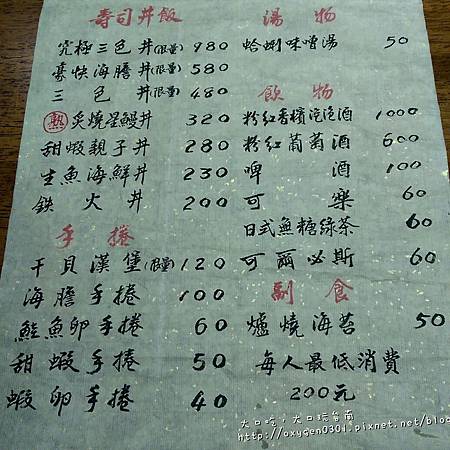 壽司丼飯
究極三色丼(限量) 980
豪快海膽丼(限量) 580
三色丼(限量) 480
熟 炙燒星鰻丼 320
甜蝦親子丼 280
生魚海鮮丼 230
鉄火丼 200
手捲
干貝漢堡(限量) 120
海膽手捲 100
鮭魚卵手捲 60
甜蝦手捲 50
蝦卵手捲 40
湯物
蛤蜊味噌湯 50
飲物
粉紅香檳泡泡酒 1000
粉紅葡萄酒 600
啤酒 100
可樂 60
日式無糖綠茶 60
可爾必斯 60
副食
爐燒海苔 50
每人最低消費
200元
大口吃,大口玩台南
http://oxygen0301.pixnet.net/blog